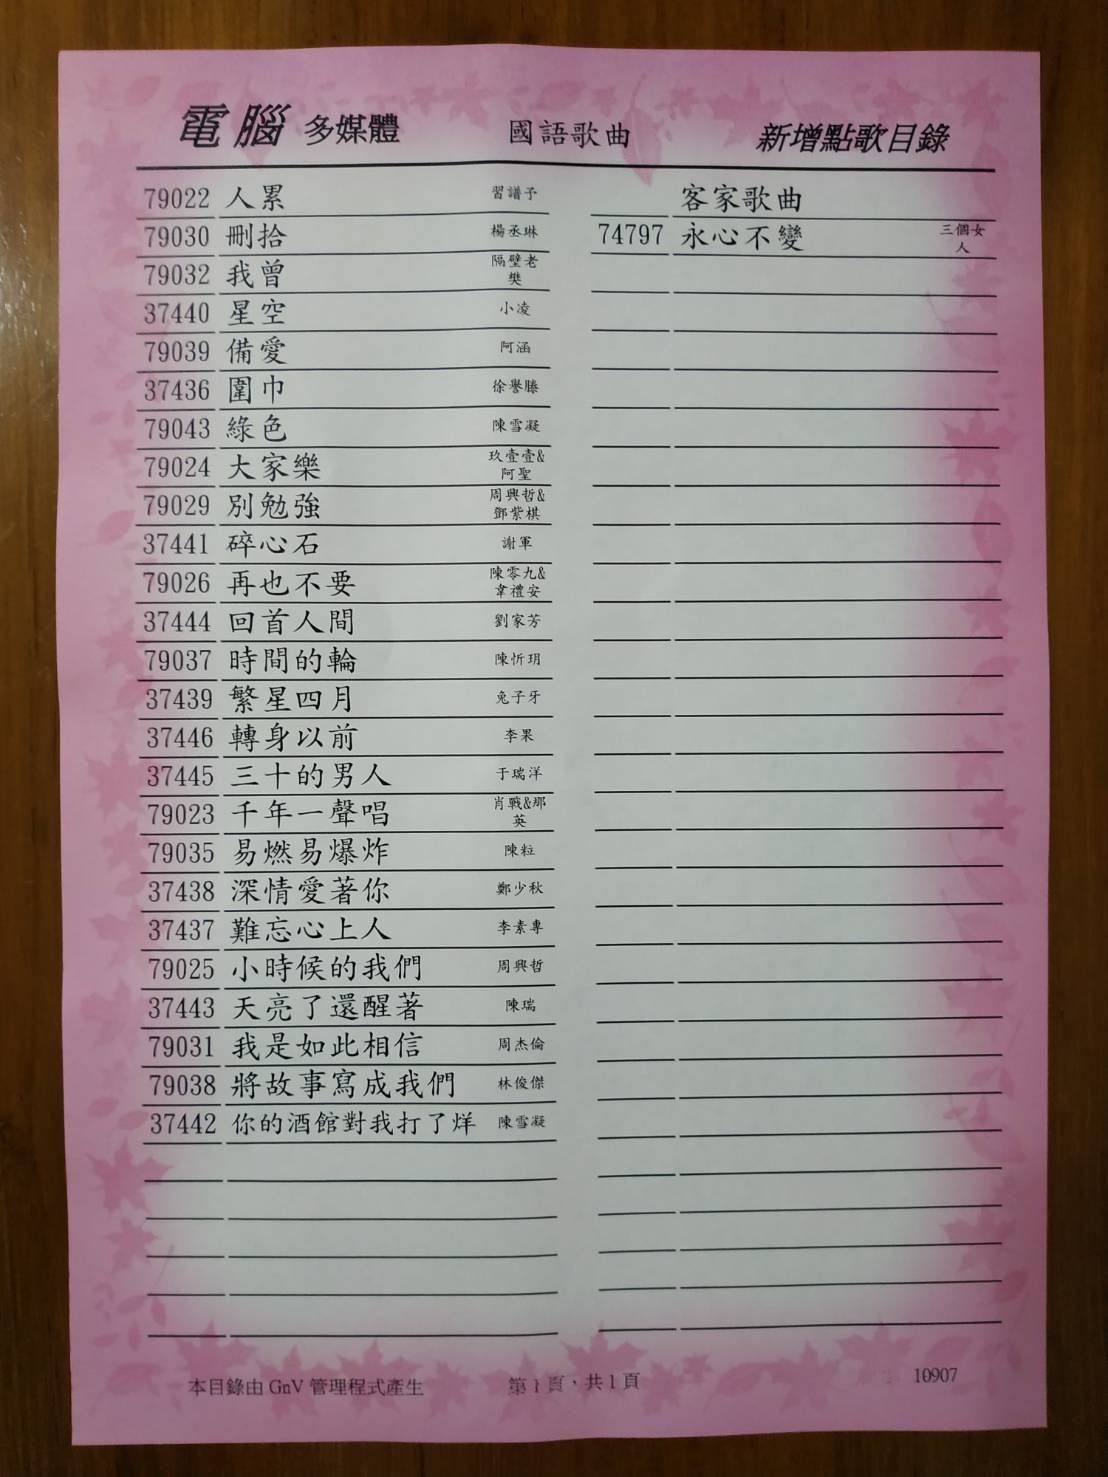 電腦 多媒體 國語歌曲 新增點歌目錄
79022 人累 習譜予
79030 刪拾 楊丞琳
79032 我曾 隔壁老
樊
37440 星空 小凌
79039 備愛 阿涵
37436 圍巾 徐譽滕
79043 綠色 陳雪凝
79024 大家樂 玖壹壹&
阿聖
79029 別勉強 周興哲&
鄧紫棋
37441 碎心石 謝軍
79026 再也不要 陳零九&
韋禮安
37444 回首人間 劉家芳
79037 時間的輪 陳忻玥
37439 繁星四月 兔子牙
37446 轉身以前 李果
37445 三十的男人 于瑞洋
79023 千年一聲唱 肖戰&那
英
79035 易燃易爆炸 陳粒
37438 深情愛著你 鄭少秋
37437 難忘心上人 李素專
79025 小時候的我們 周興哲
37443 天亮了還醒著 陳瑞
79031 我是如此相信 周杰倫
79038 將故事寫成我們 林俊傑
37442 你的酒館對我打了烊 陳雪凝
客家歌曲
74797 永心不變 三個女
人
本目錄由 GnV 管理程式產生 第1頁，共1頁 10907